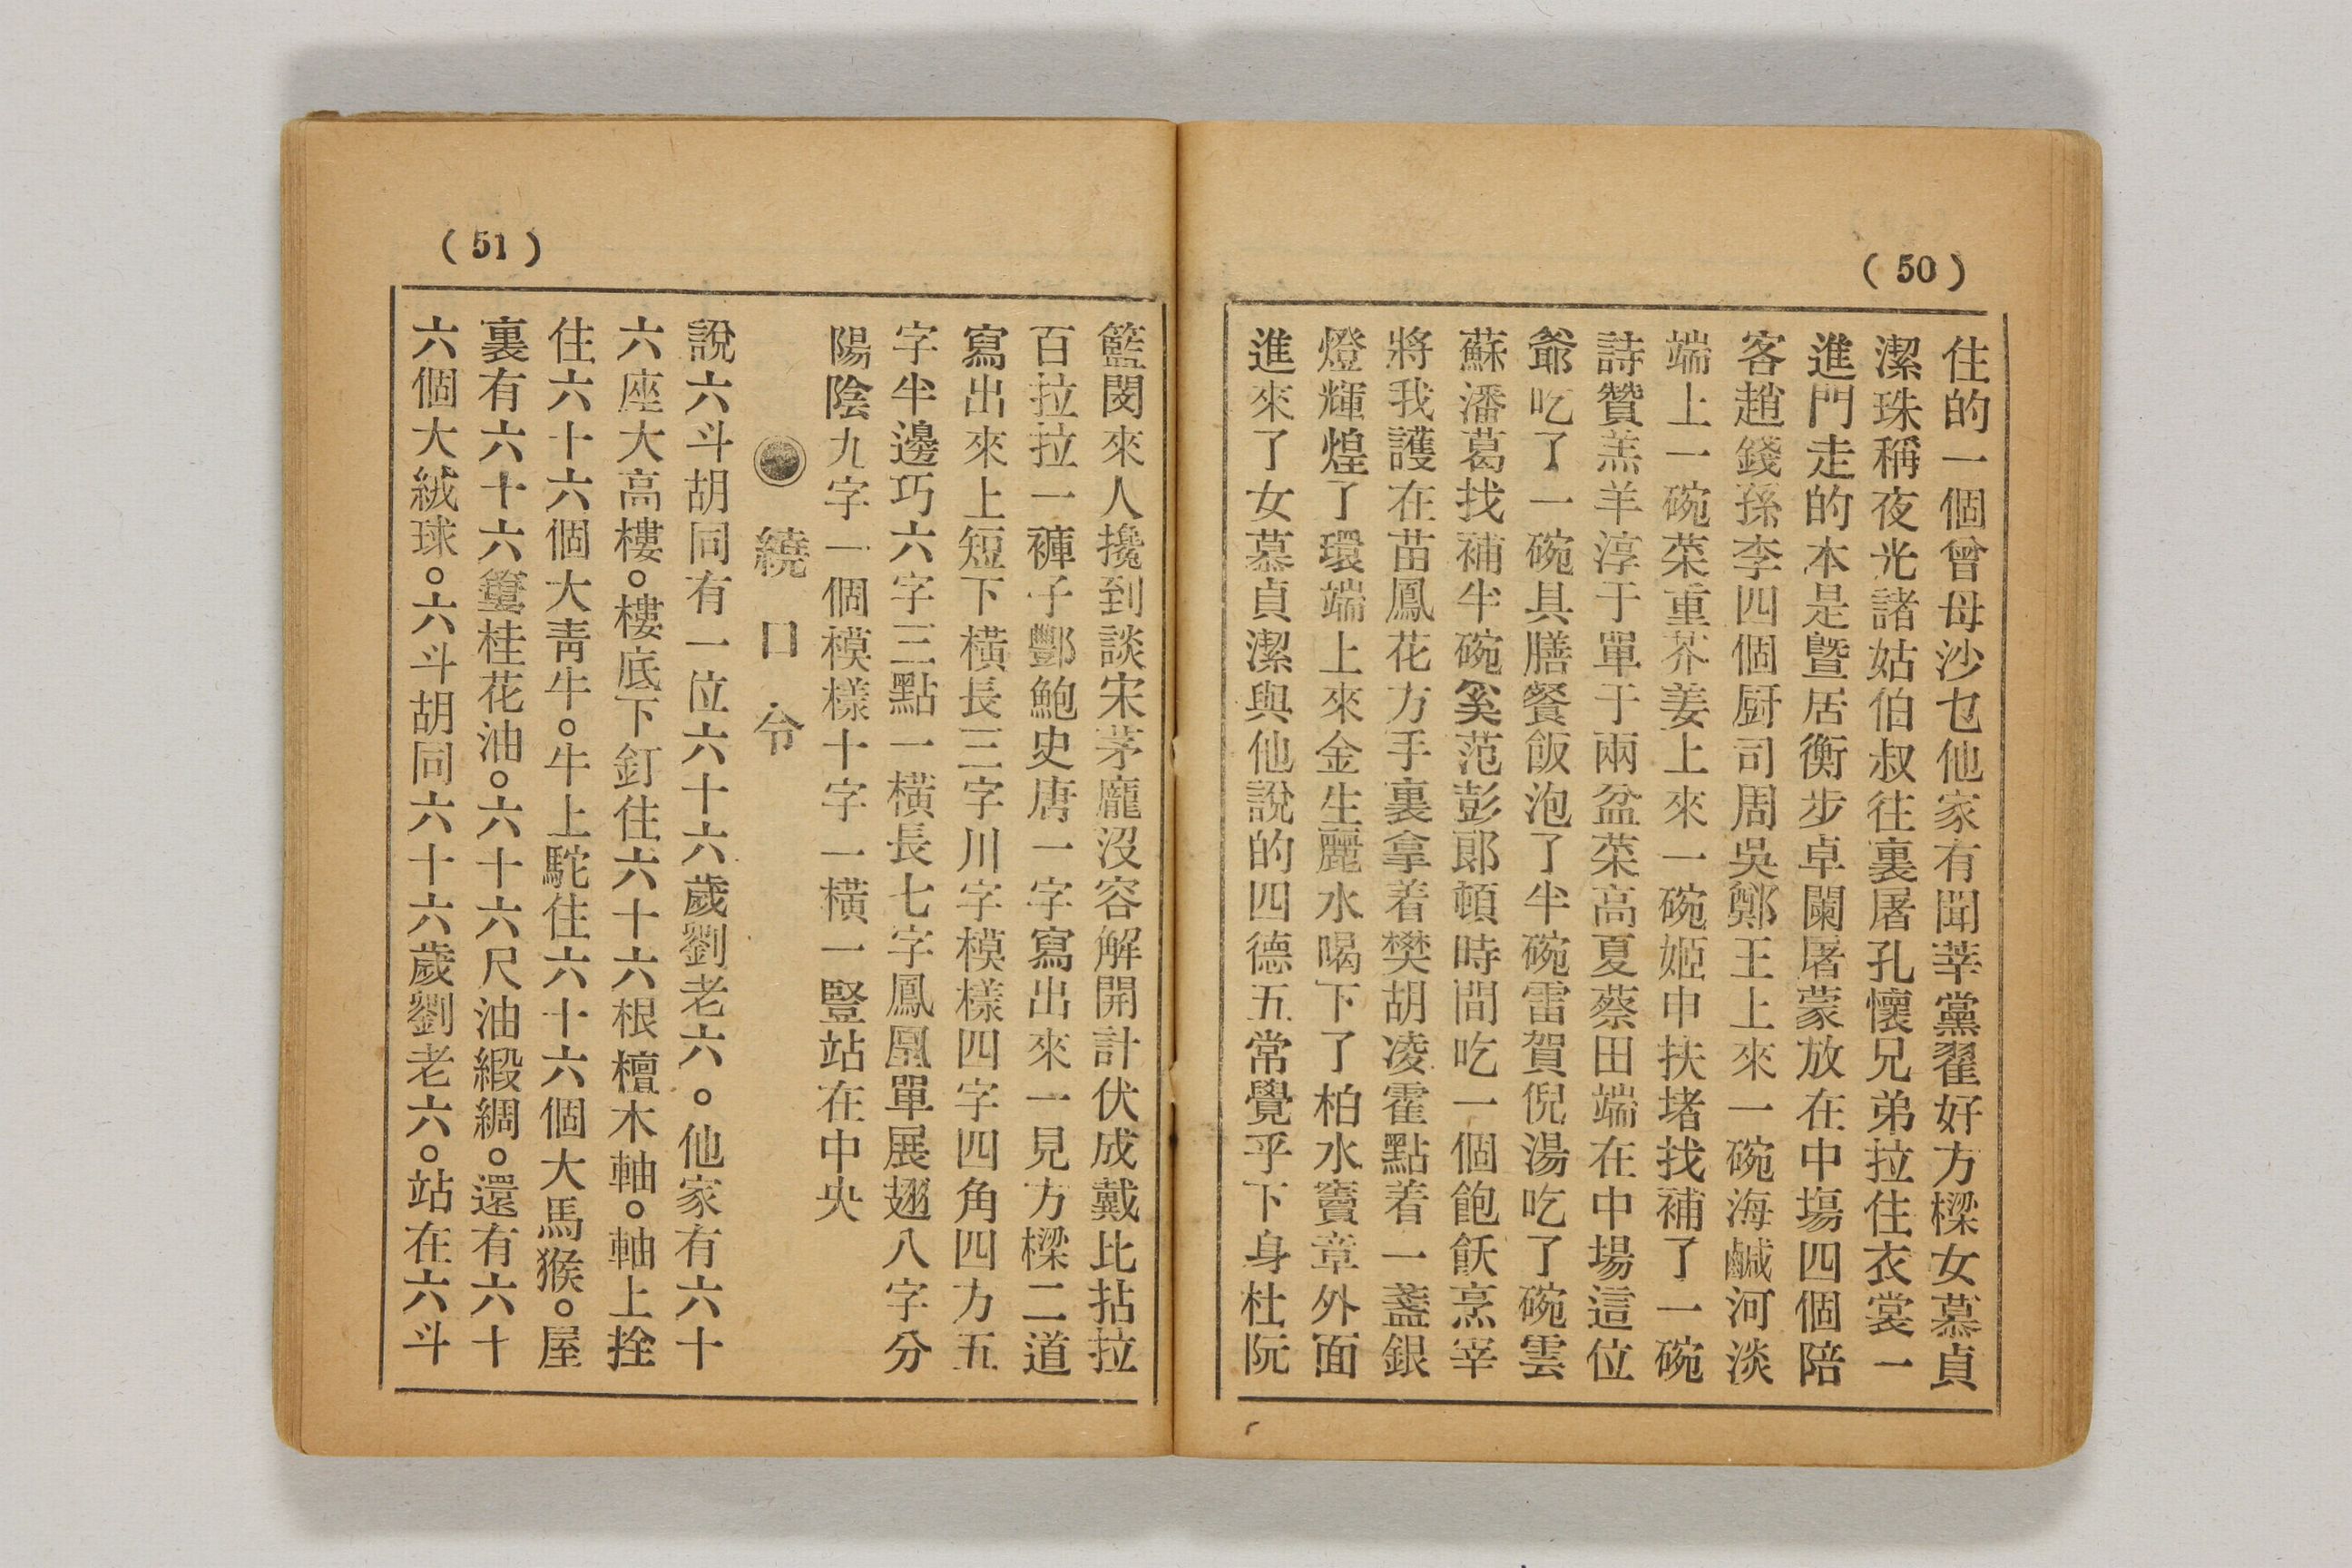 (50)
住的一個曾母沙乜他家有聞莘黨翟好方樑女慕貞
潔珠稱夜光諸姑伯叔往裏屠孔懷兄弟拉住衣裳一
進門走的本是暨居衡步卓闌屠蒙放在中塲四個陪
客趙錢孫李四個厨司周吳鄭王上來一碗海鹹河淡
端上一碗菜重芥姜上來一碗姬申扶堵找補了一碗
詩贊羔羊淳于單于兩盆菜高夏蔡田端在中場這位
爺吃了一碗具膳餐飯泡了半碗雷賀倪湯吃了碗雲
蘇潘葛找補半碗奚范彭郞頓時間吃一個飽飫烹宰
將我護在苗鳳花方手裏拿着樊胡凌霍點着一盞銀
燈輝煌了環端上來金生麗水喝下了柏水竇章外面
進來了女慕貞潔與他說的四德五常覺乎下身杜阮
(51)
籃閔來人攙到談宋茅龐沒容解開計伏成戴比拈拉
百拉拉一褲子酆鮑史唐一字寫出來一見方樑二道
寫出來上短下橫長三字川字模樣四字四角四方五
字半邊巧六字三點一橫長七字鳳凰單展翅八字分
陽陰九字一個模樣十字一橫一豎站在中央
繞口令
說六斗胡同有一位六十六歲劉老六。他家有六十
六座大高樓。樓底下釘住六十六根檀木軸。軸上拴
住六十六個大靑牛。牛上駝住六十六個大馬猴。屋
裏有六十六簍桂花油。六十六尺油緞綢。還有六十
六個大絨球。六斗胡同六十六歲劉老六。站在六斗